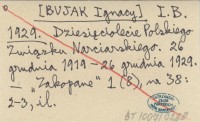 [BUJAK Ignacy] I.B.
1929. Dziesięciolecie Polskiego
Związku Narciarskiego. 26
grudnia 1919 - 26 grudnia 1929.
— "Zakopane" 1 (8), nr 38:
2-3; il.